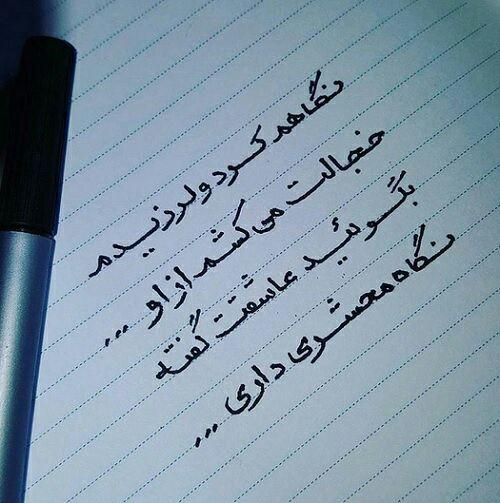 نگاهم کرد و لرزیدم
خجالت می کشم از او ...
بگوئید عاشقت گفته
نگاه محشری داری ...